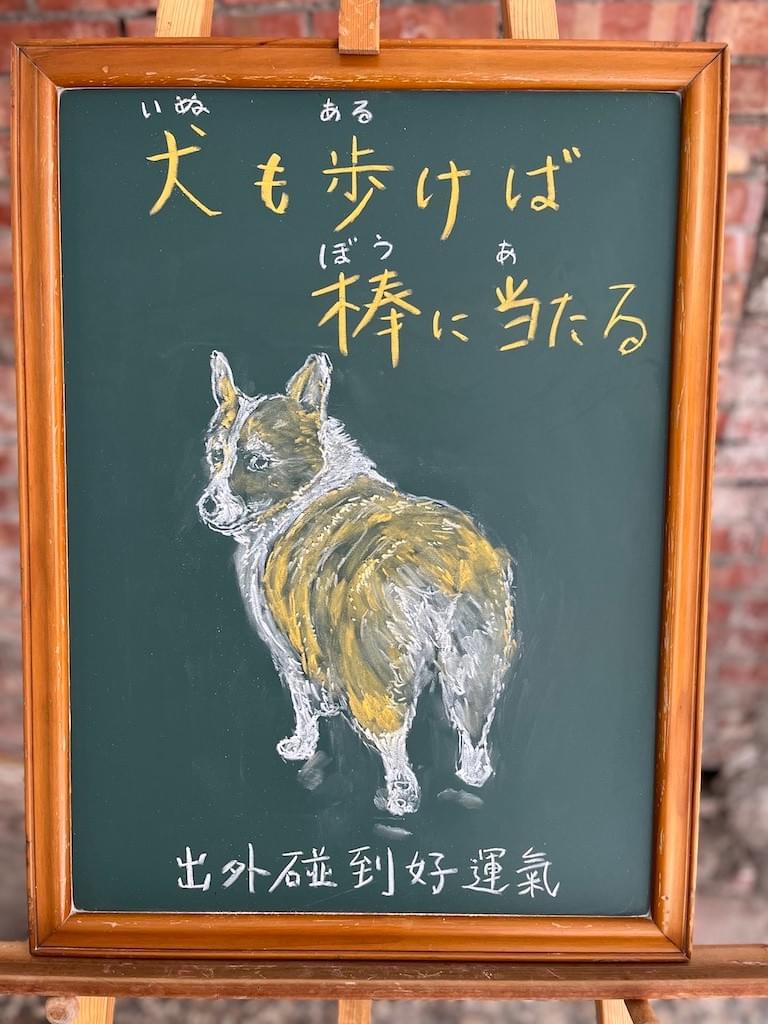 いぬ ある
犬も歩けば
ぼう あ
棒に当たる
出外碰到好運氣